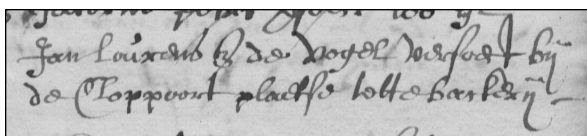 Jan Louwens z de vogel versoect bij
de Cloppoort plaetse totte backerij